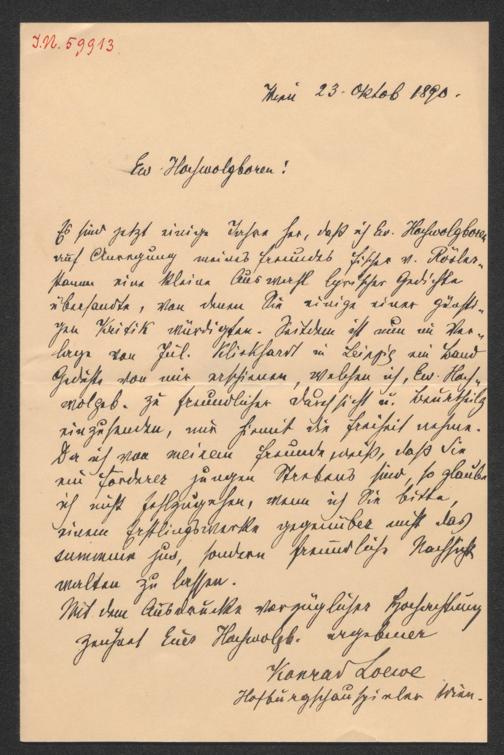 I.N. 59913
Wien 23. Oktob 1890.
Ew. Hochwolgboren!
Es sind jetzt einige Jahre her, daß ich Ew. Hochwolgboren
auf Anregung meines Freundes Fischer v. Rösler-
stamm eine kleine Auswahl lyrischer Gedichte
übersandte, von denen Sie einige einer günsti-
gen Kritik würdigten. Seitdem ist nun im Ver-
lage von Jul. Klinkhardt in Leipzig ein Band
Gedichte von mir erschienen, welchen ich, Ew. Hoch-
wolgeb. zu freundlicher Durchsicht u. Beurtheilg
einzusenden, mir hiemit die Freiheit nehme.
Da ich von meinem Freunde weiß, daß Sie
ein Förderer jungen Strebens sind, so glaube
ich nicht fehlzugehen, wenn ich Sie bitte,
einem Erstlingswerke gegenüber nicht das
summum jus, sondern freundliche Nachsicht
walten zu lassen.
Mit dem Ausdrucke vorzüglicher Hochachtung
zeichnet Euer Hochwolgb. ergebener
Konrad Loewe
Hofburgschauspieler Wien.